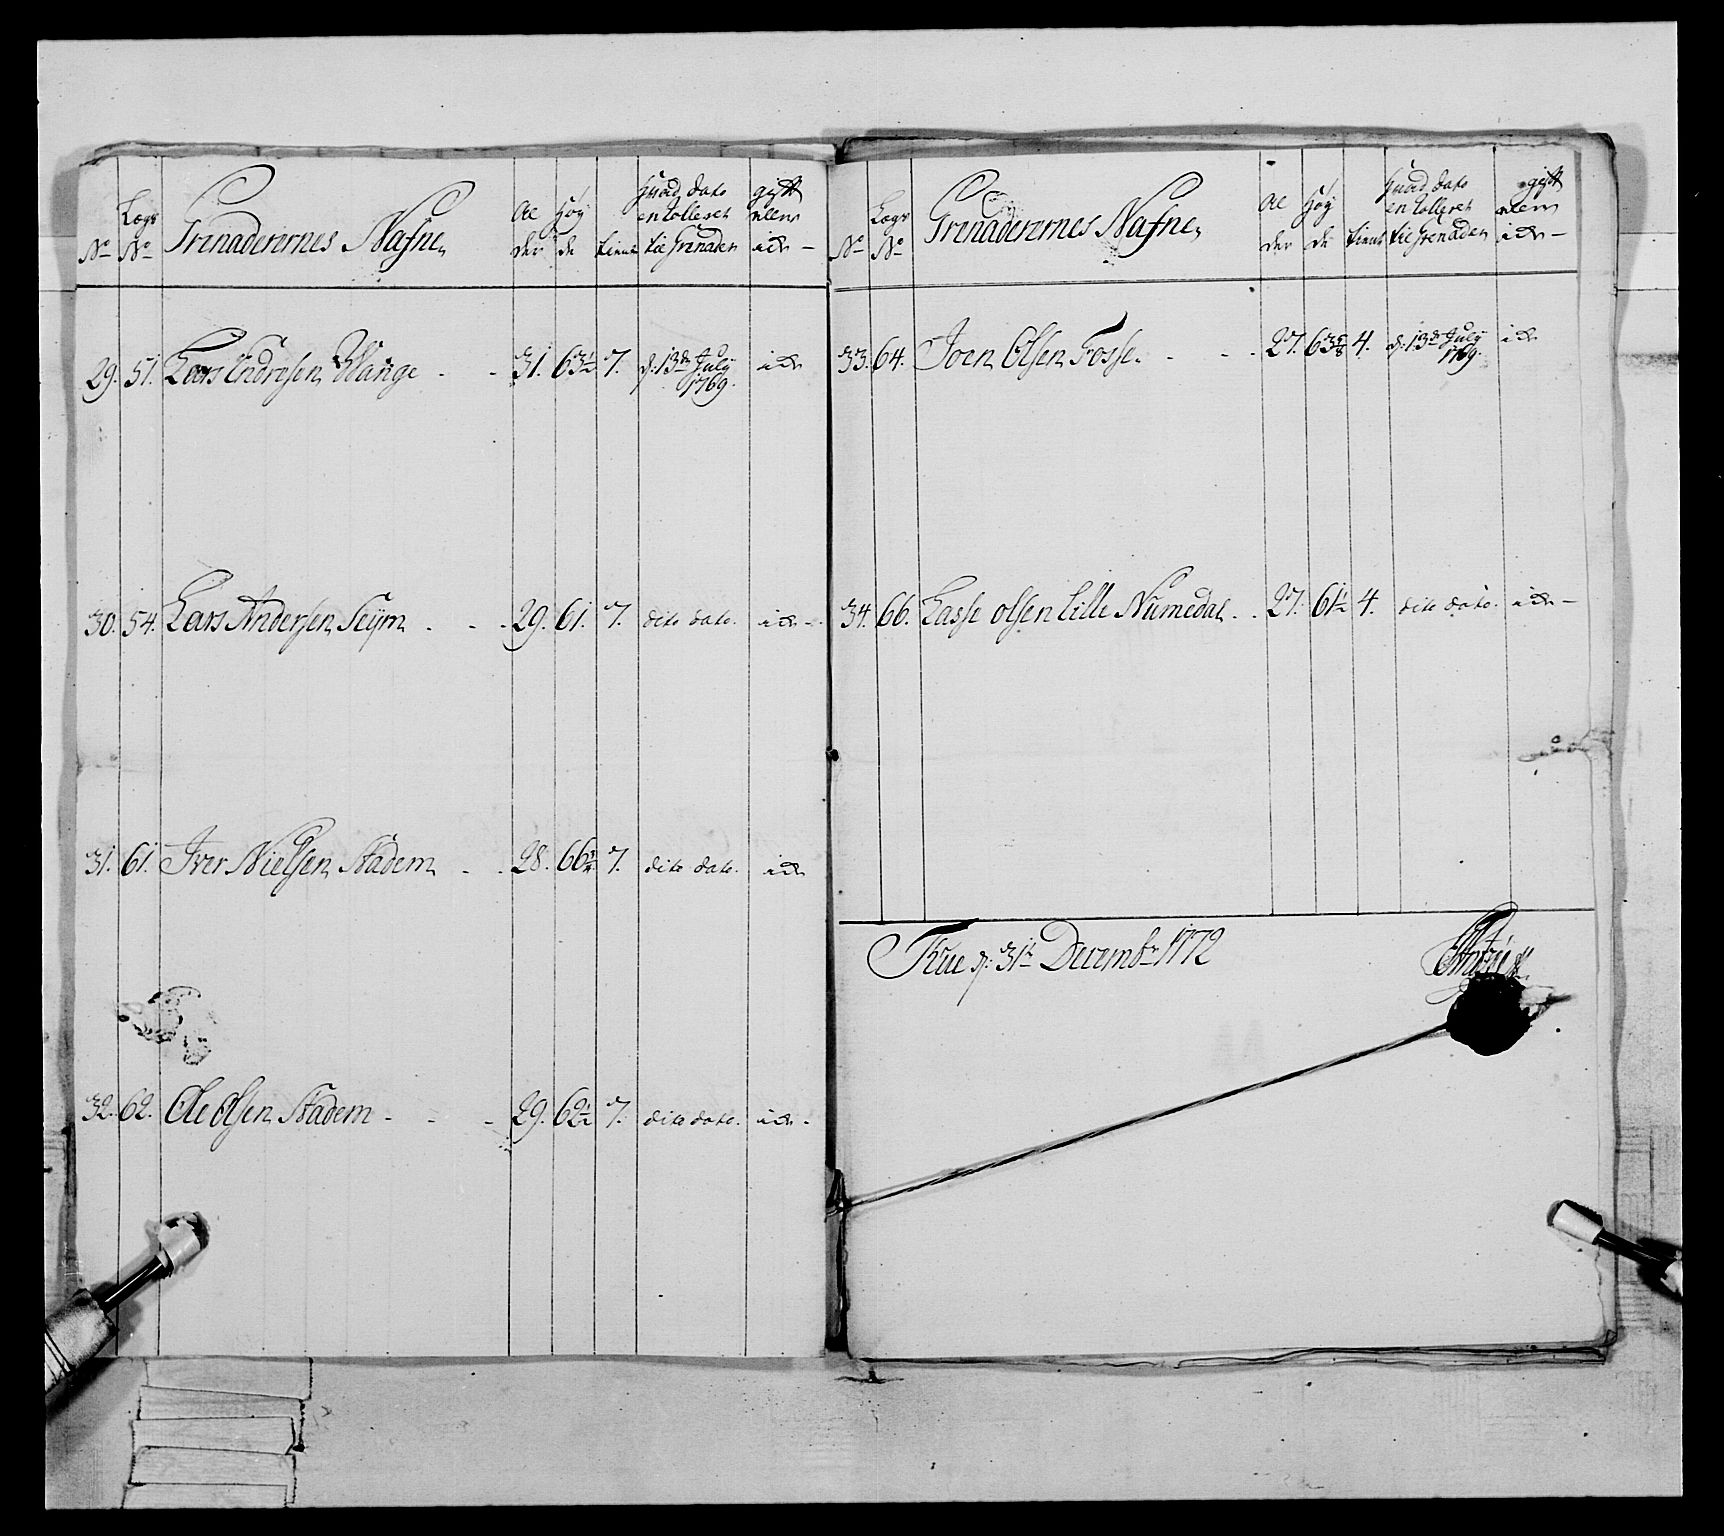 No
Lægs No
Grenaderernes Nafne
Al der
Høy de
tient
hvad dato enrolleret til Grenader
gift eller ide
29. 51. Lars Endresen Wange - - 31. 63½ 7. d. 13de July 1769. ide
30. 54. Lars Andersen Seÿm - - - 29. 61. 7. dito dato. ide -
31. 61. Iver Nielsen Stadem - - 28. 66¾ 7. dito dato. ide
32. 62. Ole Olsen Stadem - - - 29. 62½ 7. dito dato. ide -
No
Lægs No
Grenaderernes Nafne
Al der
Høy de
tient
hvad dato enrolleret til Grenader
gift eller ide -
33. 64. Joen Olsen Fosse - - - 27. 63⅝ 4. d. 13de July 1769. ide
34. 66. Lasse Olsen Lille Numedal - - 27. 61½ 4. dito dato. ide -
d. 31te Decembr 1772